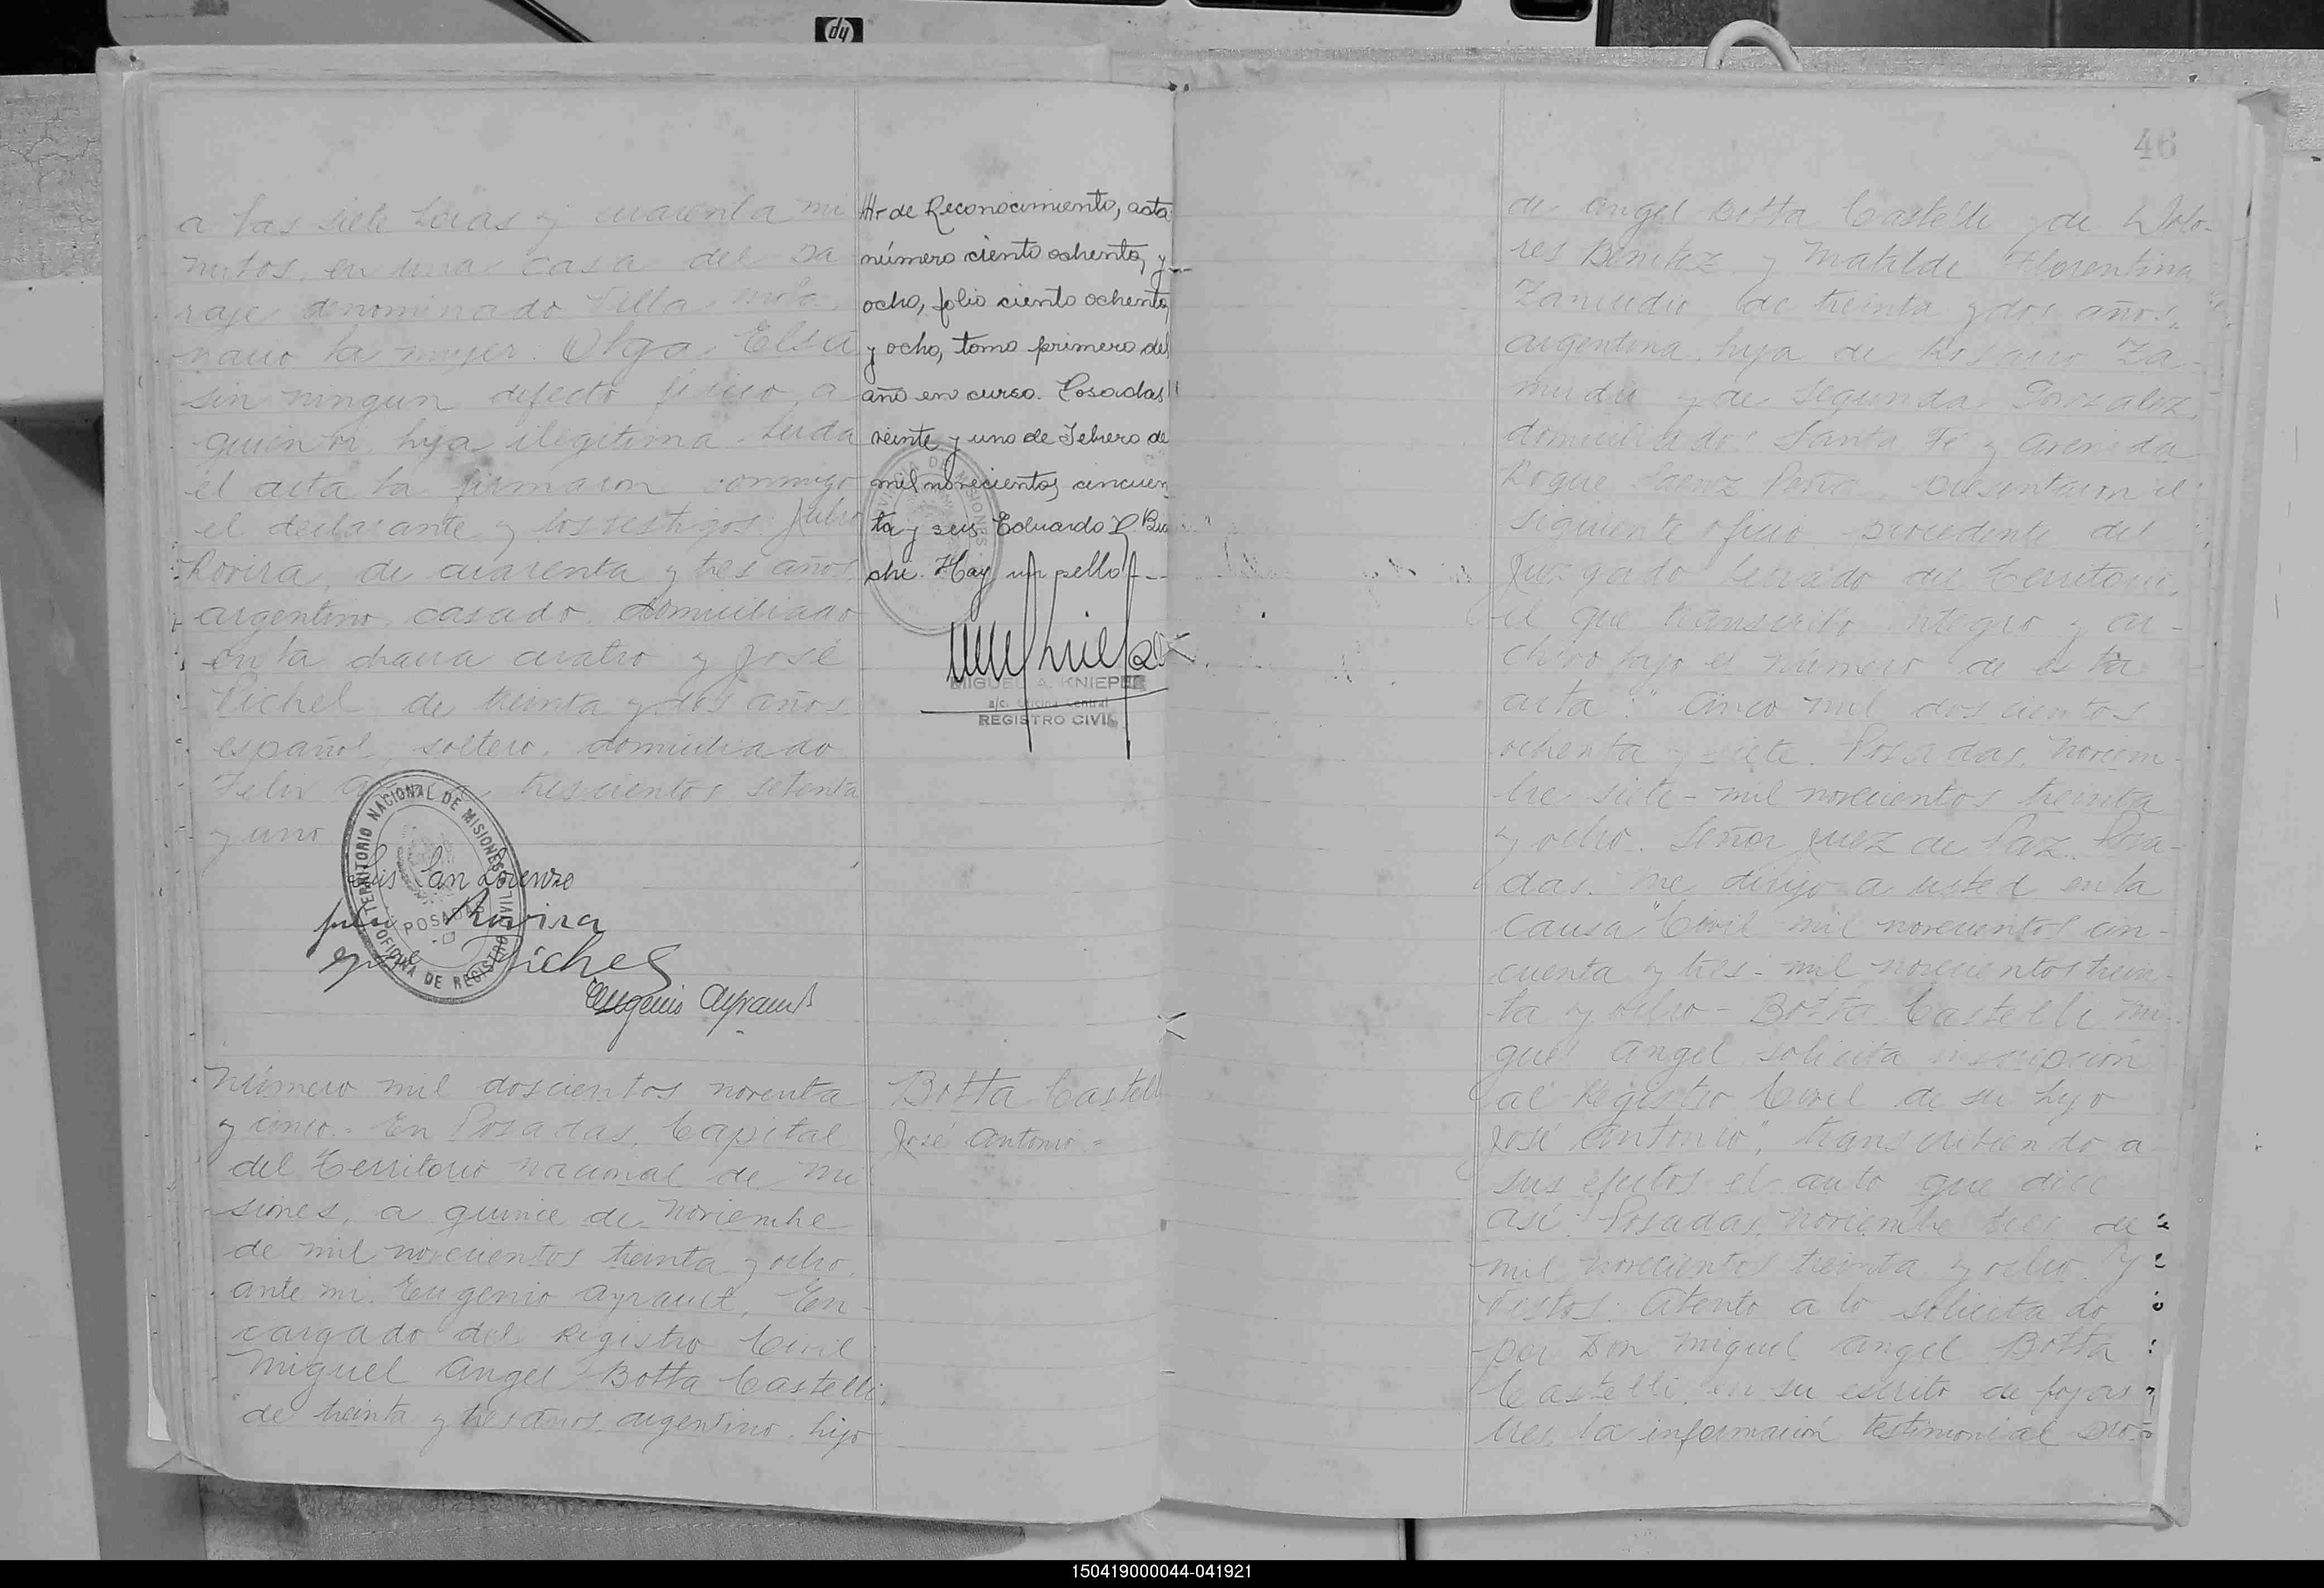 hp
a las siete horas y cuarenta mi
nutos, en una casa del pa
raje denominado Villa
nació la mujer. Olga Elsa
sin ningun defecto físico, a
quien vi, hija ilegítima. Leida
el acta la firmaron conmigo
el declarante y los testigos: Julio
Rovira, de cuarenta y tres años
argentino, casado, domiciliado
en la chacra cuatro y José
Pichel de treinta y dos años
español, soltero, domiciliado
Felix trescientos setenta
y uno
TERRITORIO NACIONAL DE MISIONES
OFICINA DE REGISTRO CIVIL
POSADAS
Luis San Lorenzo
Julio Rovira
Pichel
Eugenio Ayrault
Número mil doscientos noventa
y cinco.- En Posadas, Capital
del Territorio nacional de Mi
siones, a quince de Noviembre
de mil novecientos treinta y ocho,
ante mi, Eugenio Ayrault, En-
cargado del Registro Civil
Miguel Angel Botta Castelli,
de treinta y tres años, argentino, hijo
de Reconocimiento, acta
número ciento ochenta y
ocho, folio ciento ochenta
y ocho, tomo primero del
año en curso. Posadas
veinte y uno de Febrero de
mil novecientos cincuen
ta y seis. Eduardo
che. Hay un sello
MIGUEL A. KNIEPE
a/c. Oficina Central
REGISTRO CIVIL
Botta Castell
José Antonio =
46
de Angel Botta Castelli y de Dolo-
res Benitez y Matilde Florentina
Zamudio de treinta y dos años,
argentina, hija de Rosario Za-
mudio y de Segunda Gonzalez,
domiciliados Santa Fé y Avenida
Roque Saenz Peña, presentaron el
siguiente oficio procedente del
Juzgado Letrado del Territorio,
el que transcribo integro y ar-
chivo bajo el número de esta
acta: "Cinco mil doscientos
ochenta y siete. Posadas, Noviem-
bre siete - mil novecientos treinta
y ocho. Señor Juez de Paz. Posa-
das. Me dirijo a usted en la
causa "Civil mil novecientos cin-
cuenta y tres - mil novecientos trein-
ta y ocho - Botta Castelli Mi-
guel Angel solicita inscripción
al Registro Civil de su hijo
José Antonio", transcribiendo a
sus efectos el auto que dice
así: Posadas, Noviembre tres de
mil novecientos treinta y ocho. Y
Vistos: Atento a lo solicitado
por Don Miguel Angel Botta
Castelli, en su escrito de fojas
tres, la información testimonial pro-
150419000044-041921